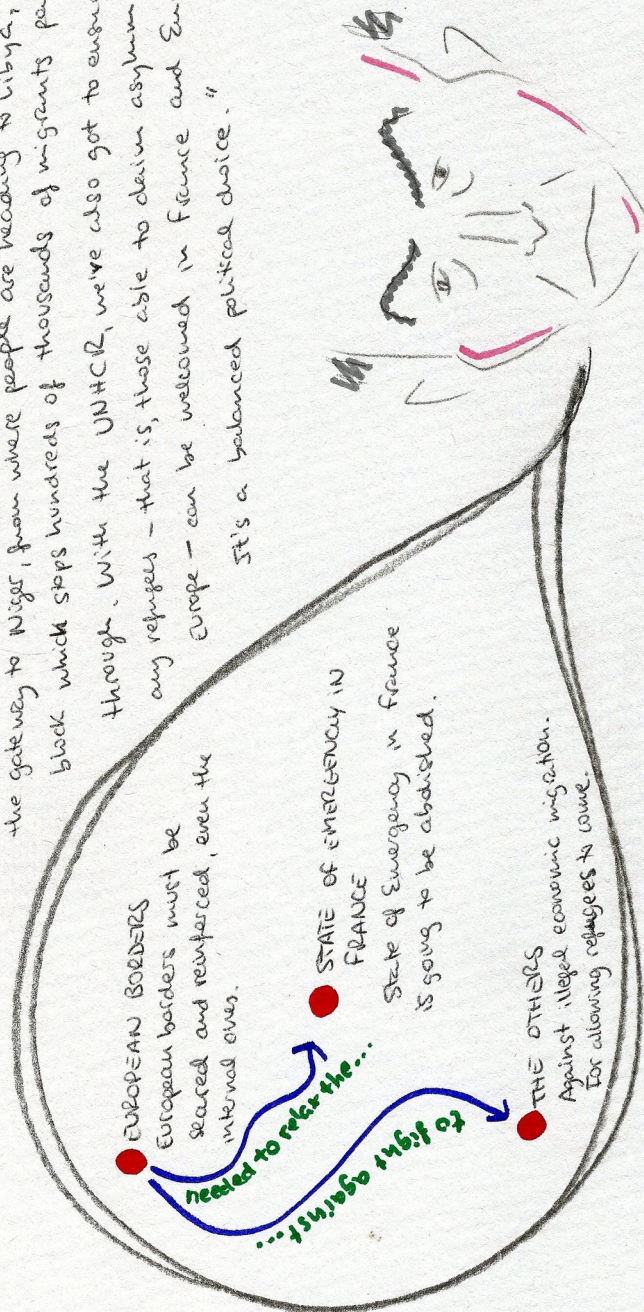 the gateway to Niger, from where people are heading to Libya,
block which stops hundreds of thousands of migrants
through. With the UNHCR, we've also got to
any refugees - that is, those able to claim asylum
Europe - can be welcomed in France and
It's a balanced political choice."
EUROPEAN BORDERS
European borders must be
seared and reinforced, even the
internal ones.
needed to relax the...
to fight against...
STATE OF EMERGENCY IN
FRANCE
State of Emergency in France
is going to be abolished.
THE OTHERS
Against illegal economic migration.
For allowing refugees to come.